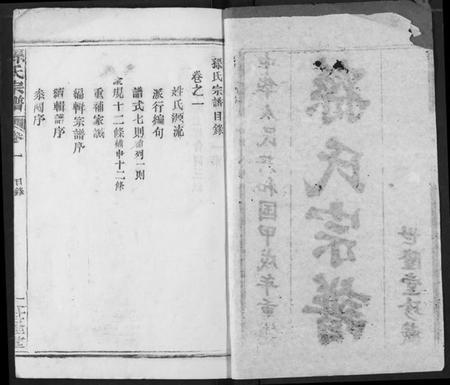 堂珍藏
孫氏宗譜
中華人民共和國甲戌年重修
孫氏宗譜目錄
卷之一
姓氏源流
派行編句
譜式七則 列一則
家規十二條 續申十二條
重補家誡
編輯宗譜序
續輯譜序
序
孫氏宗譜 卷一 目錄 堂